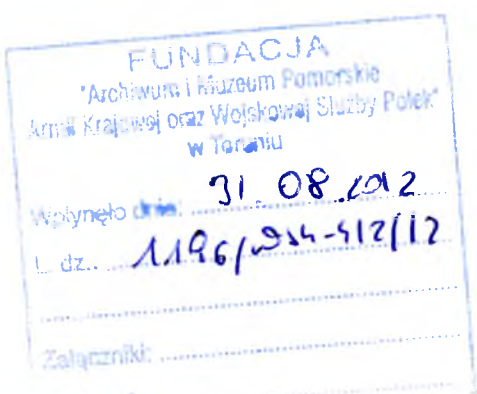 FUNDACJA
"Archiwum i Muzeum Pomorskie
Armii Krajowej oraz Wojskowej Służby Polek"
w Toruniu
Wpłynęło dnia: 31. 08. 2012
L. dz.. 1196/
Załączniki: